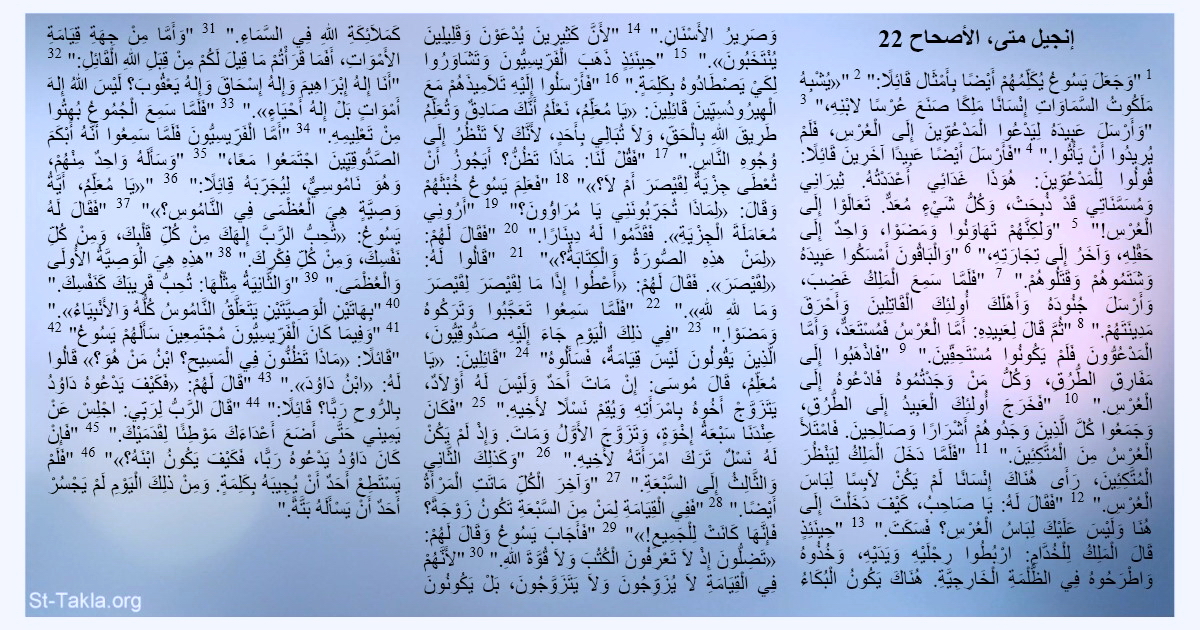 إنجيل متى، الأصحاح 22
1 "وَجَعَلَ يَسُوعُ يُكَلِّمُهُمْ أَيْضًا بِأَمْثَال قَائِلًا:" 2 "«يُشْبِهُ
مَلَكُوتُ السَّمَاوَاتِ إِنْسَانًا مَلِكًا صَنَعَ عُرْسًا لابْنِهِ،" 3
"وَأَرْسَلَ عَبِيدَهُ لِيَدْعُوا الْمَدْعُوِّينَ إِلَى الْعُرْسِ، فَلَمْ
يُرِيدُوا أَنْ يَأْتُوا." 4 "فَأَرْسَلَ أَيْضًا عَبِيدًا آخَرِينَ قَائِلًا:
قُولُوا لِلْمَدْعُوِّينَ: هُوَذَا غَدَائِي أَعْدَدْتُهُ. ثِيرَانِي
وَمُسَمَّنَاتِي قَدْ ذُبِحَتْ، وَكُلُّ شَيْءٍ مُعَدٌّ. تَعَالَوْا إِلَى
الْعُرْسِ!" 5 "وَلكِنَّهُمْ تَهَاوَنُوا وَمَضَوْا، وَاحِدٌ إِلَى
حَقْلِهِ، وَآخَرُ إِلَى تِجَارَتِهِ،" 6 "وَالْبَاقُونَ أَمْسَكُوا عَبِيدَهُ
وَشَتَمُوهُمْ وَقَتَلُوهُمْ." 7 "فَلَمَّا سَمِعَ الْمَلِكُ غَضِبَ،
وَأَرْسَلَ جُنُودَهُ وَأَهْلَكَ أُولئِكَ الْقَاتِلِينَ وَأَحْرَقَ
مَدِينَتَهُمْ." 8 "ثُمَّ قَالَ لِعَبِيدِهِ: أَمَّا الْعُرْسُ فَمُسْتَعَدٌّ، وَأَمَّا
الْمَدْعُوُّونَ فَلَمْ يَكُونُوا مُسْتَحِقِّينَ." 9 "فَاذْهَبُوا إِلَى
مَفَارِقِ الطُّرُقِ، وَكُلُّ مَنْ وَجَدْتُمُوهُ فَادْعُوهُ إِلَى
الْعُرْسِ." 10 "فَخَرَجَ أُولئِكَ الْعَبِيدُ إِلَى الطُّرُقِ،
وَجَمَعُوا كُلَّ الَّذِينَ وَجَدُوهُمْ أَشْرَارًا وَصَالِحِينَ. فَامْتَلأَ
الْعُرْسُ مِنَ الْمُتَّكِئِينَ." 11 "فَلَمَّا دَخَلَ الْمَلِكُ لِيَنْظُرَ
الْمُتَّكِئِينَ، رَأَى هُنَاكَ إِنْسَانًا لَمْ يَكُنْ لاَبِسًا لِبَاسَ
الْعُرْسِ." 12 "فَقَالَ لَهُ: يَا صَاحِبُ، كَيْفَ دَخَلْتَ إِلَى
هُنَا وَلَيْسَ عَلَيْكَ لِبَاسُ الْعُرْسِ؟ فَسَكَتَ." 13 "حِينَئِذٍ
قَالَ الْمَلِكُ لِلْخُدَّامِ: ارْبُطُوا رِجْلَيْهِ وَيَدَيْهِ، وَخُذُوهُ
وَاطْرَحُوهُ فِي الظُّلْمَةِ الْخَارِجِيَّةِ. هُنَاكَ يَكُونُ الْبُكَاءُ
وَصَرِيرُ الأَسْنَانِ." 14 "لأَنَّ كَثِيرِينَ يُدْعَوْنَ وَقَلِيلِينَ
يُنْتَخَبُونَ»." 15 "حِينَئِذٍ ذَهَبَ الْفَرِّيسِيُّونَ وَتَشَاوَرُوا
لِكَيْ يَصْطَادُوهُ بِكَلِمَةٍ." 16 "فَأَرْسَلُوا إِلَيْهِ تَلاَمِيذَهُمْ مَعَ
الْهِيرُودُسِيِّينَ قَائِلِينَ: «يَا مُعَلِّمُ، نَعْلَمُ أَنَّكَ صَادِقٌ وَتُعَلِّمُ
طَرِيقَ اللهِ بِالْحَقِّ، وَلاَ تُبَالِي بِأَحَدٍ، لأَنَّكَ لاَ تَنْظُرُ إِلَى
وُجُوهِ النَّاسِ." 17 "فَقُلْ لَنَا: مَاذَا تَظُنُّ؟ أَيَجُوزُ أَنْ
تُعْطَى جِزْيَةٌ لِقَيْصَرَ أَمْ لاَ؟»" 18 "فَعَلِمَ يَسُوعُ خُبْثَهُمْ
وَقَالَ: «لِمَاذَا تُجَرِّبُونَنِي يَا مُرَاؤُونَ؟" 19 "أَرُونِي
مُعَامَلَةَ الْجِزْيَةِ». فَقَدَّمُوا لَهُ دِينَارًا." 20 "فَقَالَ لَهُمْ:
«لِمَنْ هذِهِ الصُّورَةُ وَالْكِتَابَةُ؟»" 21 "قَالُوا لَهُ:
«لِقَيْصَرَ». فَقَالَ لَهُمْ: «أَعْطُوا إِذًا مَا لِقَيْصَرَ لِقَيْصَرَ
وَمَا للهِ للهِ»." 22 "فَلَمَّا سَمِعُوا تَعَجَّبُوا وَتَرَكُوهُ
وَمَضَوْا." 23 "فِي ذلِكَ الْيَوْمِ جَاءَ إِلَيْهِ صَدُّوقِيُّونَ،
الَّذِينَ يَقُولُونَ لَيْسَ قِيَامَةٌ، فَسَأَلُوهُ" 24 "قَائِلِينَ: «يَا
مُعَلِّمُ، قَالَ مُوسَى: إِنْ مَاتَ أَحَدٌ وَلَيْسَ لَهُ أَوْلاَدٌ،
يَتَزَوَّجْ أَخُوهُ بِامْرَأَتِهِ وَيُقِمْ نَسْلًا لأَخِيهِ." 25 "فَكَانَ
عِنْدَنَا سَبْعَةُ إِخْوَةٍ، وَتَزَوَّجَ الأَوَّلُ وَمَاتَ. وَإِذْ لَمْ يَكُنْ
لَهُ نَسْلٌ تَرَكَ امْرَأَتَهُ لأَخِيهِ." 26 "وَكَذلِكَ الثَّانِي
وَالثَّالِثُ إِلَى السَّبْعَةِ." 27 "وَآخِرَ الْكُلِّ مَاتَتِ الْمَرْأَةُ
أَيْضًا." 28 "فَفِي الْقِيَامَةِ لِمَنْ مِنَ السَّبْعَةِ تَكُونُ زَوْجَةً؟
فَإِنَّهَا كَانَتْ لِلْجَمِيعِ!»" 29 "فَأَجَابَ يَسُوعُ وَقَالَ لَهُمْ:
«تَضِلُّونَ إِذْ لاَ تَعْرِفُونَ الْكُتُبَ وَلاَ قُوَّةَ اللهِ." 30 "لأَنَّهُمْ
فِي الْقِيَامَةِ لاَ يُزَوِّجُونَ وَلاَ يَتَزَوَّجُونَ، بَلْ يَكُونُونَ
كَمَلاَئِكَةِ اللهِ فِي السَّمَاءِ." 31 "وَأَمَّا مِنْ جِهَةِ قِيَامَةِ
الأَمْوَاتِ، أَفَمَا قَرَأْتُمْ مَا قِيلَ لَكُمْ مِنْ قِبَلِ اللهِ الْقَائِلِ:" 32
"أَنَا إِلهُ إِبْرَاهِيمَ وَإِلهُ إِسْحَاقَ وَإِلهُ يَعْقُوبَ؟ لَيْسَ اللهُ إِلهَ
أَمْوَاتٍ بَلْ إِلهُ أَحْيَاءٍ»." 33 "فَلَمَّا سَمِعَ الْجُمُوعُ بُهِتُوا
مِنْ تَعْلِيمِهِ." 34 "أَمَّا الْفَرِّيسِيُّونَ فَلَمَّا سَمِعُوا أَنَّهُ أَبْكَمَ
الصَّدُّوقِيِّينَ اجْتَمَعُوا مَعًا،" 35 "وَسَأَلَهُ وَاحِدٌ مِنْهُمْ،
وَهُوَ نَامُوسِيٌّ، لِيُجَرِّبَهُ قِائِلًا:" 36 "«يَا مُعَلِّمُ، أَيَّةُ
وَصِيَّةٍ هِيَ الْعُظْمَى فِي النَّامُوسِ؟»" 37 "فَقَالَ لَهُ
يَسُوعُ: «تُحِبُّ الرَّبَّ إِلهَكَ مِنْ كُلِّ قَلْبِكَ، وَمِنْ كُلِّ
نَفْسِكَ، وَمِنْ كُلِّ فِكْرِكَ." 38 "هذِهِ هِيَ الْوَصِيَّةُ الأُولَى
وَالْعُظْمَى." 39 "وَالثَّانِيَةُ مِثْلُهَا: تُحِبُّ قَرِيبَكَ كَنَفْسِكَ."
40 "بِهَاتَيْنِ الْوَصِيَّتَيْنِ يَتَعَلَّقُ النَّامُوسُ كُلُّهُ وَالأَنْبِيَاءُ»."
41 "وَفِيمَا كَانَ الْفَرِّيسِيُّونَ مُجْتَمِعِينَ سَأَلَهُمْ يَسُوعُ" 42
"قَائلًا: «مَاذَا تَظُنُّونَ فِي الْمَسِيحِ؟ ابْنُ مَنْ هُوَ؟» قَالُوا
لَهُ: «ابْنُ دَاوُدَ»." 43 "قَالَ لَهُمْ: «فَكَيْفَ يَدْعُوهُ دَاوُدُ
بِالرُّوحِ رَبًّا؟ قَائِلًا:" 44 "قَالَ الرَّبُّ لِرَبِّي: اجْلِسْ عَنْ
يَمِيني حَتَّى أَضَعَ أَعْدَاءَكَ مَوْطِئًا لِقَدَمَيْكَ." 45 "فَإِنْ
كَانَ دَاوُدُ يَدْعُوهُ رَبًّا، فَكَيْفَ يَكُونُ ابْنَهُ؟»" 46 "فَلَمْ
يَسْتَطِعْ أَحَدٌ أَنْ يُجِيبَهُ بِكَلِمَةٍ. وَمِنْ ذلِكَ الْيَوْمِ لَمْ يَجْسُرْ
أَحَدٌ أَنْ يَسْأَلَهُ بَتَّةً."
St-Takla.org